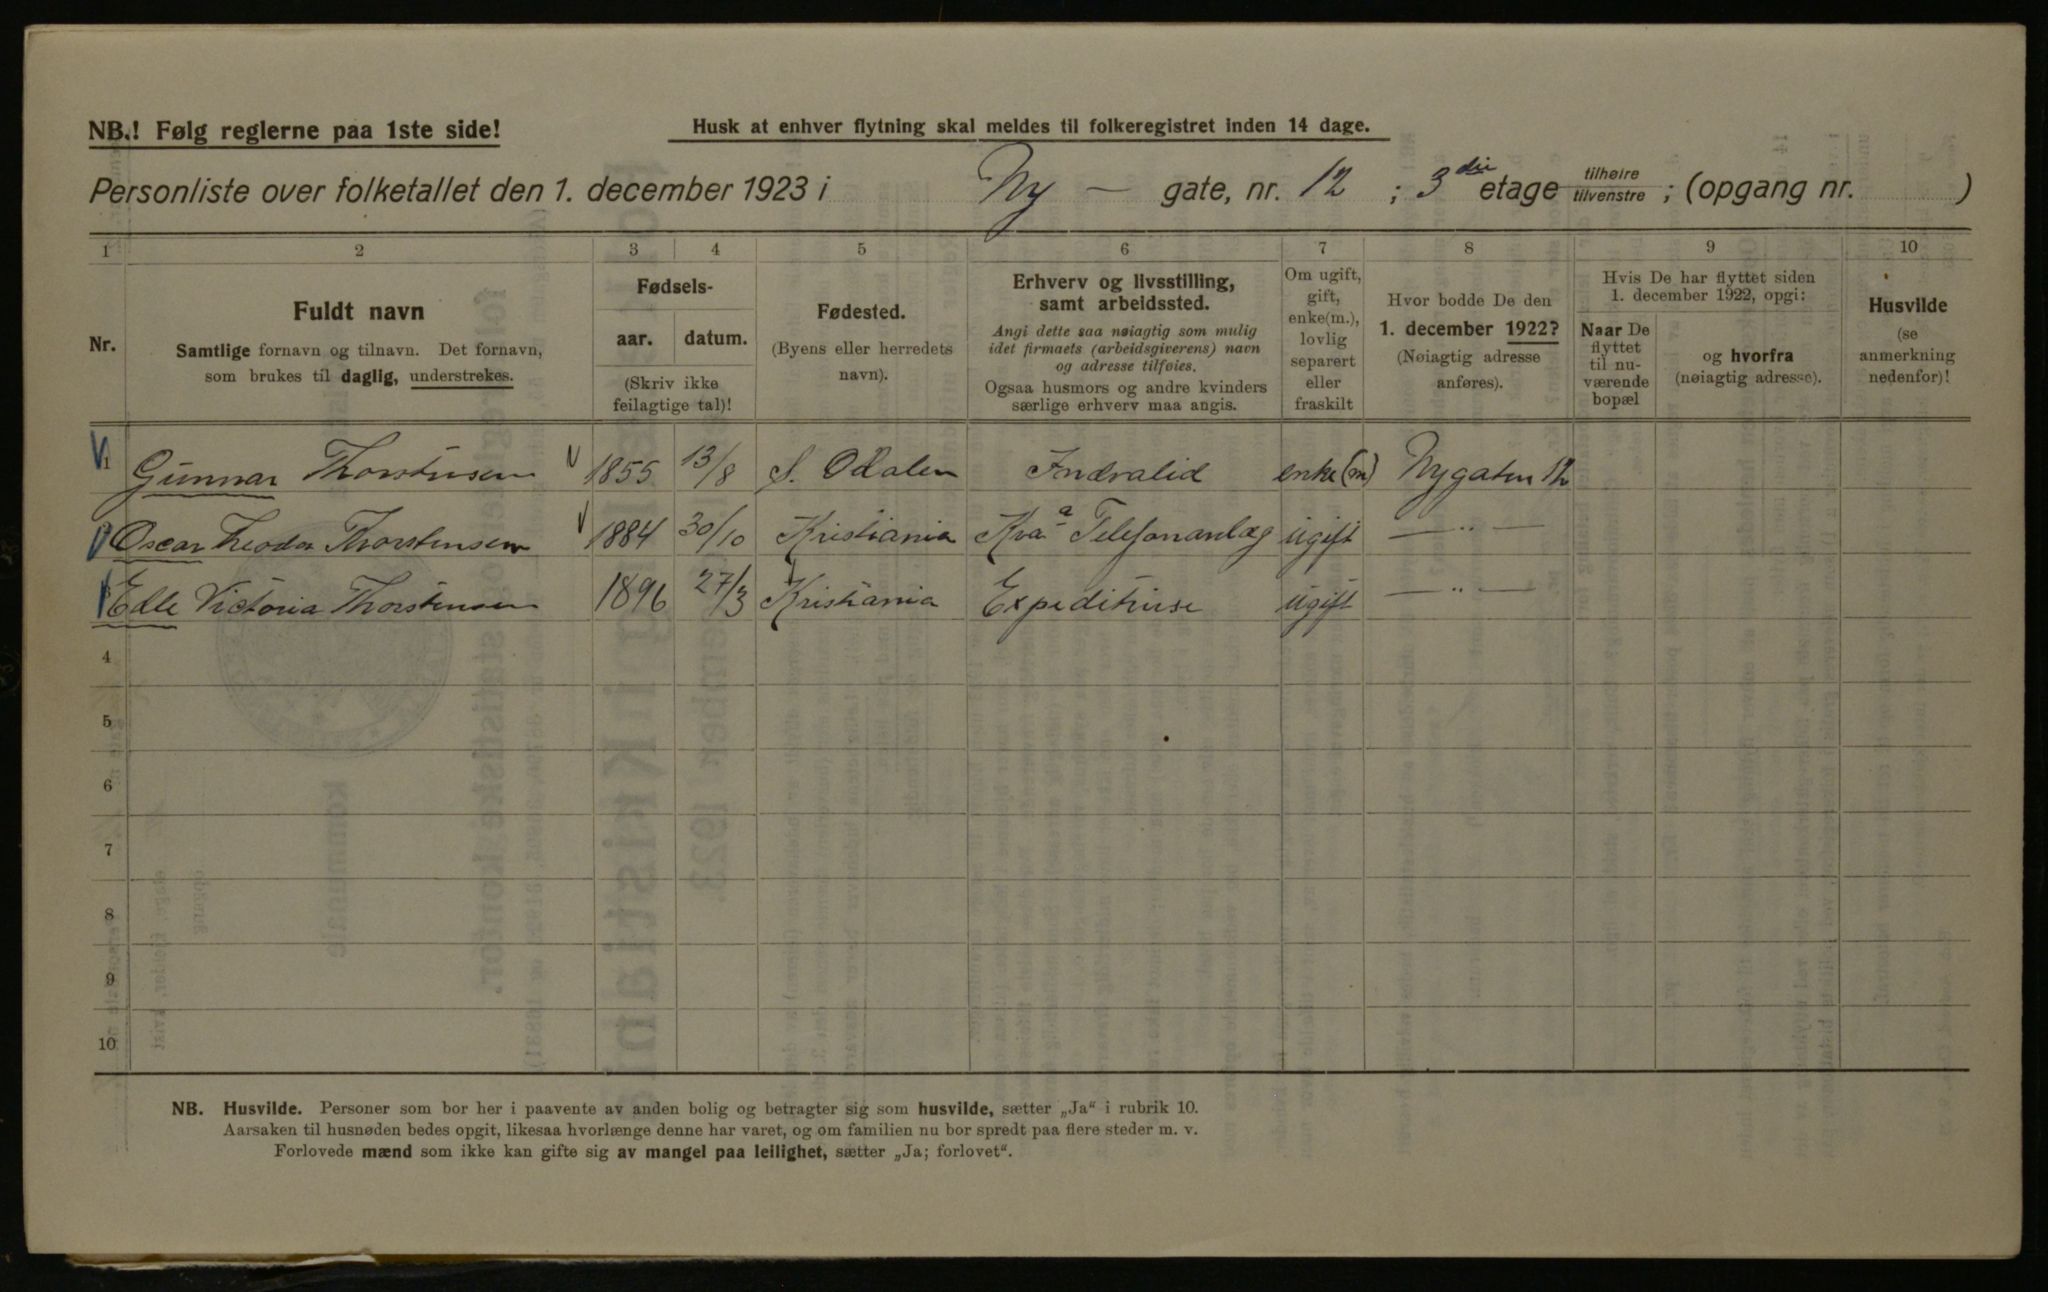 NB.! Følg reglerne paa 1ste side!
Husk at enhver flytning skal meldes til folkeregistret inden 14 dage.
Personliste over folketallet den 1. december 1923 i Ny — gate, nr. 12 ; 3die etage tilhøire tilvenstre ; (opgang nr. )
1 2 3 4 5 6 7 8 9 10
Nr.
Fuldt navn
Samtlige fornavn og tilnavn. Det fornavn,
som brukes til daglig, understrekes.
Fødsels-
aar. datum.
(Skriv ikke
feilagtige tal)!
Fødested.
(Byens eller herredets
navn).
Erhverv og livsstilling,
samt arbeidssted.
Angi dette saa nøiagtig som mulig
idet firmaets (arbeidsgiverens) navn
og adresse tilføies.
Ogsaa husmors og andre kvinders
særlige erhverv maa angis.
Om ugift,
gift,
enke(m.),
lovlig
separert
eller
fraskilt
Hvor bodde De den
1. december 1922?
(Nøiagtig adresse
anføres).
Hvis De har flyttet siden
1. december 1922, opgi:
Naar De
flyttet
til nu-
værende
bopæl
og hvorfra
(nøiagtig adresse).
Husvilde
(se
anmerkning
nedenfor)!
1 Gunnar Thorstensen 1855 13/8 S. Odalen enke(m) Nygaten 12
Oscar Theodor Thorstensen 1884 30/10 Kristiania Kra Telefonanlæg ugift — " —
3 Edle Victoria Thorstensen 1896 27/3 Kristiania Expeditrise ugift — " —
4
5
6
7
8
9
10
NB. Husvilde. Personer som bor her i paavente av anden bolig og betragter sig som husvilde, sætter „Ja“ i rubrik 10.
Aarsaken til husnøden bedes opgit, likesaa hvorlænge denne har varet, og om familien nu bor spredt paa flere steder m. v.
Forlovede mænd som ikke kan gifte sig av mangel paa leilighet, sætter „Ja; forlovet“.